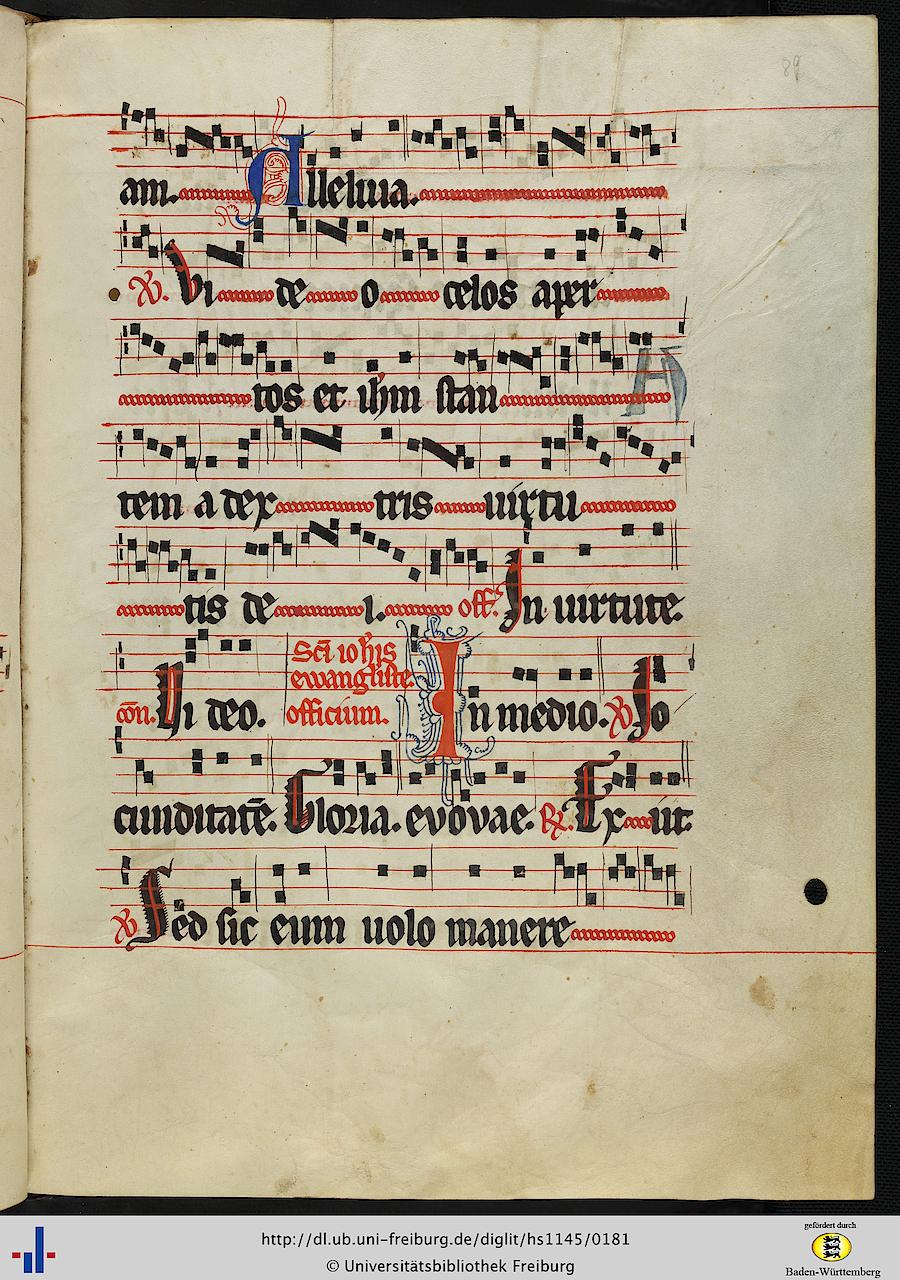 89
am. Alleluia.
℣. Vi de o celos aper
tos et ih̄m stan
tem a dex tris uirtu
tis de i. off. In uirtute.
cōn. Vi deo. Sc̄i ioh̄is ewangliste. officium. In medio. ℣ Jo
cunditatē. Gloria. evovae. ℟. Ex iit.
℣ Sed sic eum uolo manere
http://dl.ub.uni-freiburg.de/diglit/hs1145/0181
© Universitätsbibliothek Freiburg
gefördert durch
Baden-Württemberg